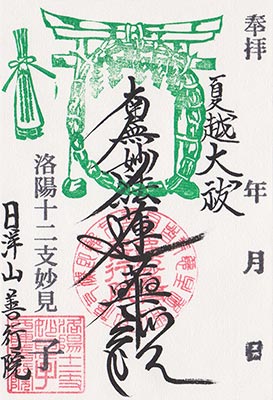 奉拝
年 月 日
夏越大祓
南無妙法蓮華経
洛陽十二支妙見 子
日洋山善行院